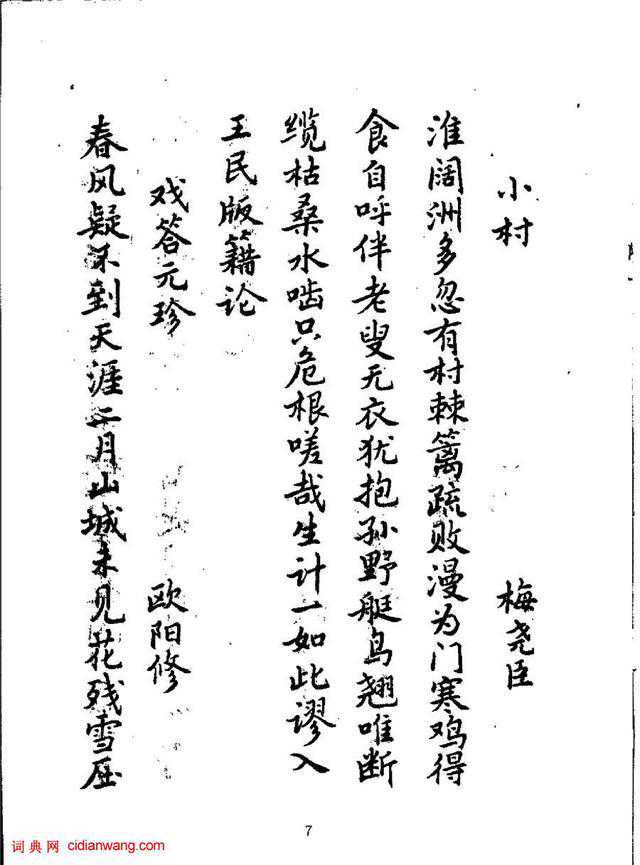 小村 梅尧臣
淮阔洲多忽有村棘篱疏败漫为门寒鸡得
食自呼伴老叟无衣犹抱孙野艇鸟翘唯断
缆枯桑水啮只危根嗟哉生计一如此谬入
王民版籍论
戏答元珍 欧阳修
春风疑不到天涯二月山城未见花残雪压
7
词典网 cidianwang.com